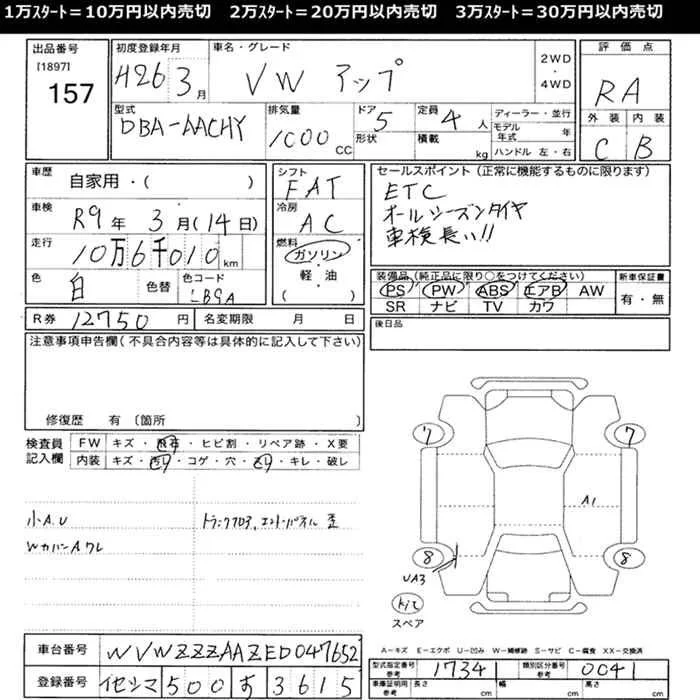 1万スタート＝10万円以内売切　2万スタート＝20万円以内売切　3万スタート＝30万円以内売切
出品番号 [1897] 157
初度登録年月 H26 3月
車名・グレード VW アップ
2WD・4WD
評価点 RA
型式 DBA-AACHY
排気量 1000 CC
ドア形状 5
定員 4人
積載 kg
ディーラー・並行
モデル年式 年
ハンドル 左・右
外装 C
内装 B
車歴 自家用・( )
車検 R9年 3月(14日)
走行 10万6千010km
色 白 色替 色コード LB9A
シフト FAT
冷房 AC
燃料 ガソリン・軽油 ( )
セールスポイント(正常に機能するものに限ります)
ETC
オールシーズンタイヤ
車検長い!!
装備品(純正品に限り○をつけてください)
PS PW ABS エアB AW
SR ナビ TV カワ
新車保証書 有・無
R券 12750円
名変期限 月 日
後日品
注意事項申告欄(不具合内容等は具体的に記入して下さい)
修復歴 有〔箇所
検査員記入欄
FW キズ・飛石・ヒビ割・リペア跡・X要
内装 キズ・汚れ・コゲ・穴・スレ・キレ・破レ
小A.U
WカバーAワレ
トランクフロア、エンドパネル 歪
7 7
A1
8 8
UA3
kit
スペア
A－キズ E－エクボ U－凹み W－補修跡 S－サビ C－腐食 XX－交換済
車台番号 WVWZZZAAZED047652
登録番号 イセシマ 500 す 3615
型式指定番号 参考 17341
類別区分番号 参考 0041
車庫証明用 参考 長さ cm 幅 cm 高さ cm